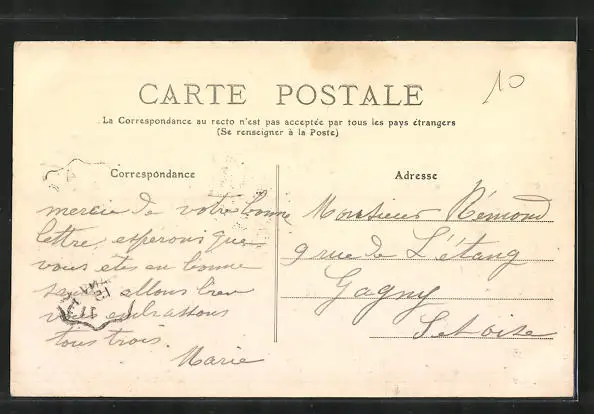 10
CARTE POSTALE
La Correspondance au recto n'est pas acceptée par tous les pays étrangers
(Se renseigner à la Poste)
Correspondance
Adresse
mercie de votre bonne
lettre, esperons que
vous etes en bonne
allons bien
embrassons
tous trois.
Marie
Monsieur Rémond
9 rue de L'étang
Gagny
Set oise